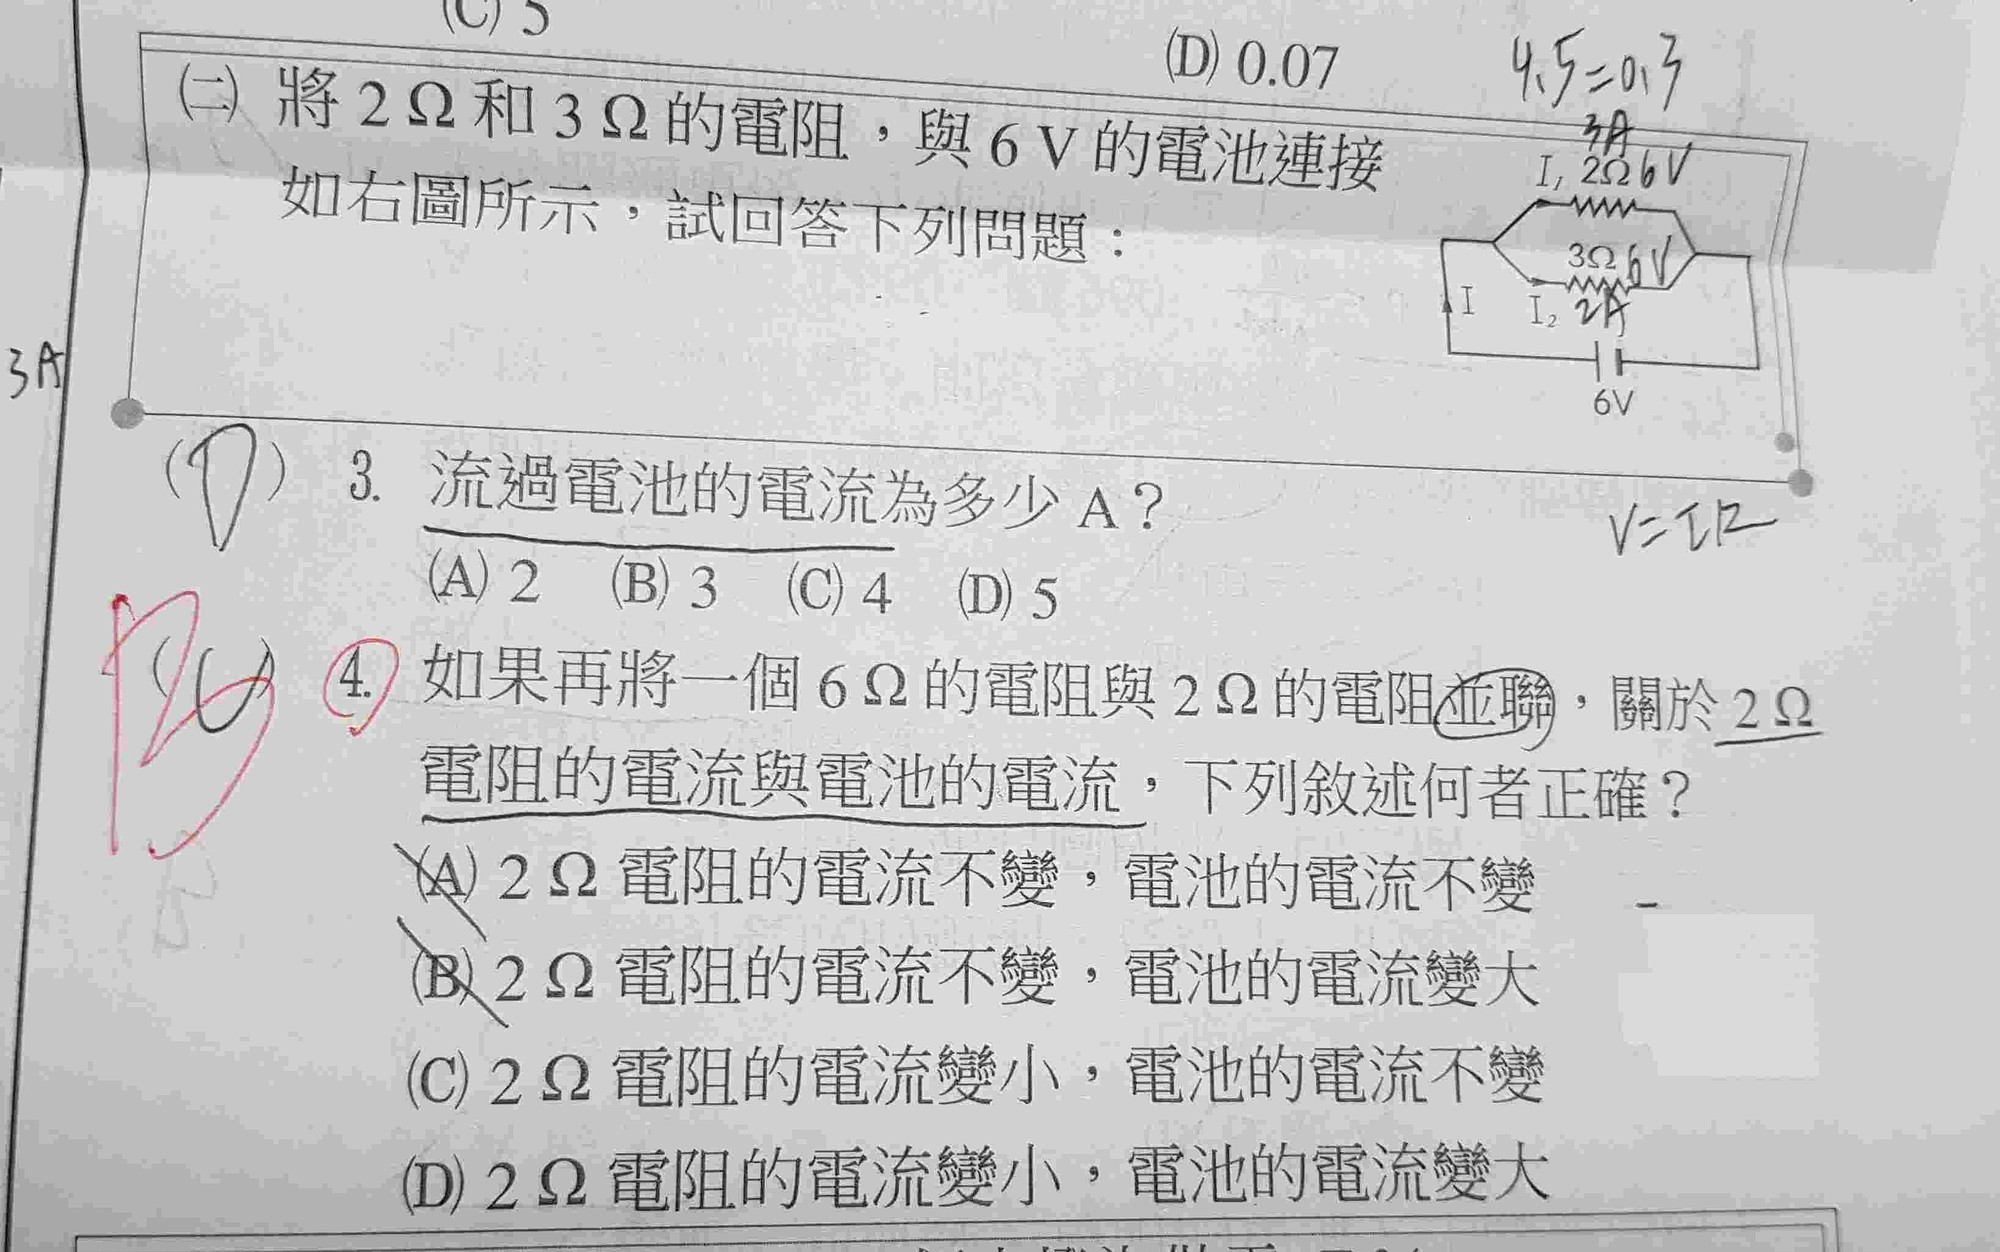 (C) 5
(D) 0.07
4.5=0.3
㈡ 將 2 Ω 和 3 Ω 的電阻，與 6 V 的電池連接
如右圖所示，試回答下列問題：
3A
I₁ 2Ω 6V
3Ω 6V
I
I₂ 2A
6V
3A
(D) 3. 流過電池的電流為多少 A？
V=IR
(A) 2 (B) 3 (C) 4 (D) 5
B
(C) 4. 如果再將一個 6 Ω 的電阻與 2 Ω 的電阻並聯，關於 2 Ω
電阻的電流與電池的電流，下列敘述何者正確？
(A) 2 Ω 電阻的電流不變，電池的電流不變
(B) 2 Ω 電阻的電流不變，電池的電流變大
(C) 2 Ω 電阻的電流變小，電池的電流不變
(D) 2 Ω 電阻的電流變小，電池的電流變大